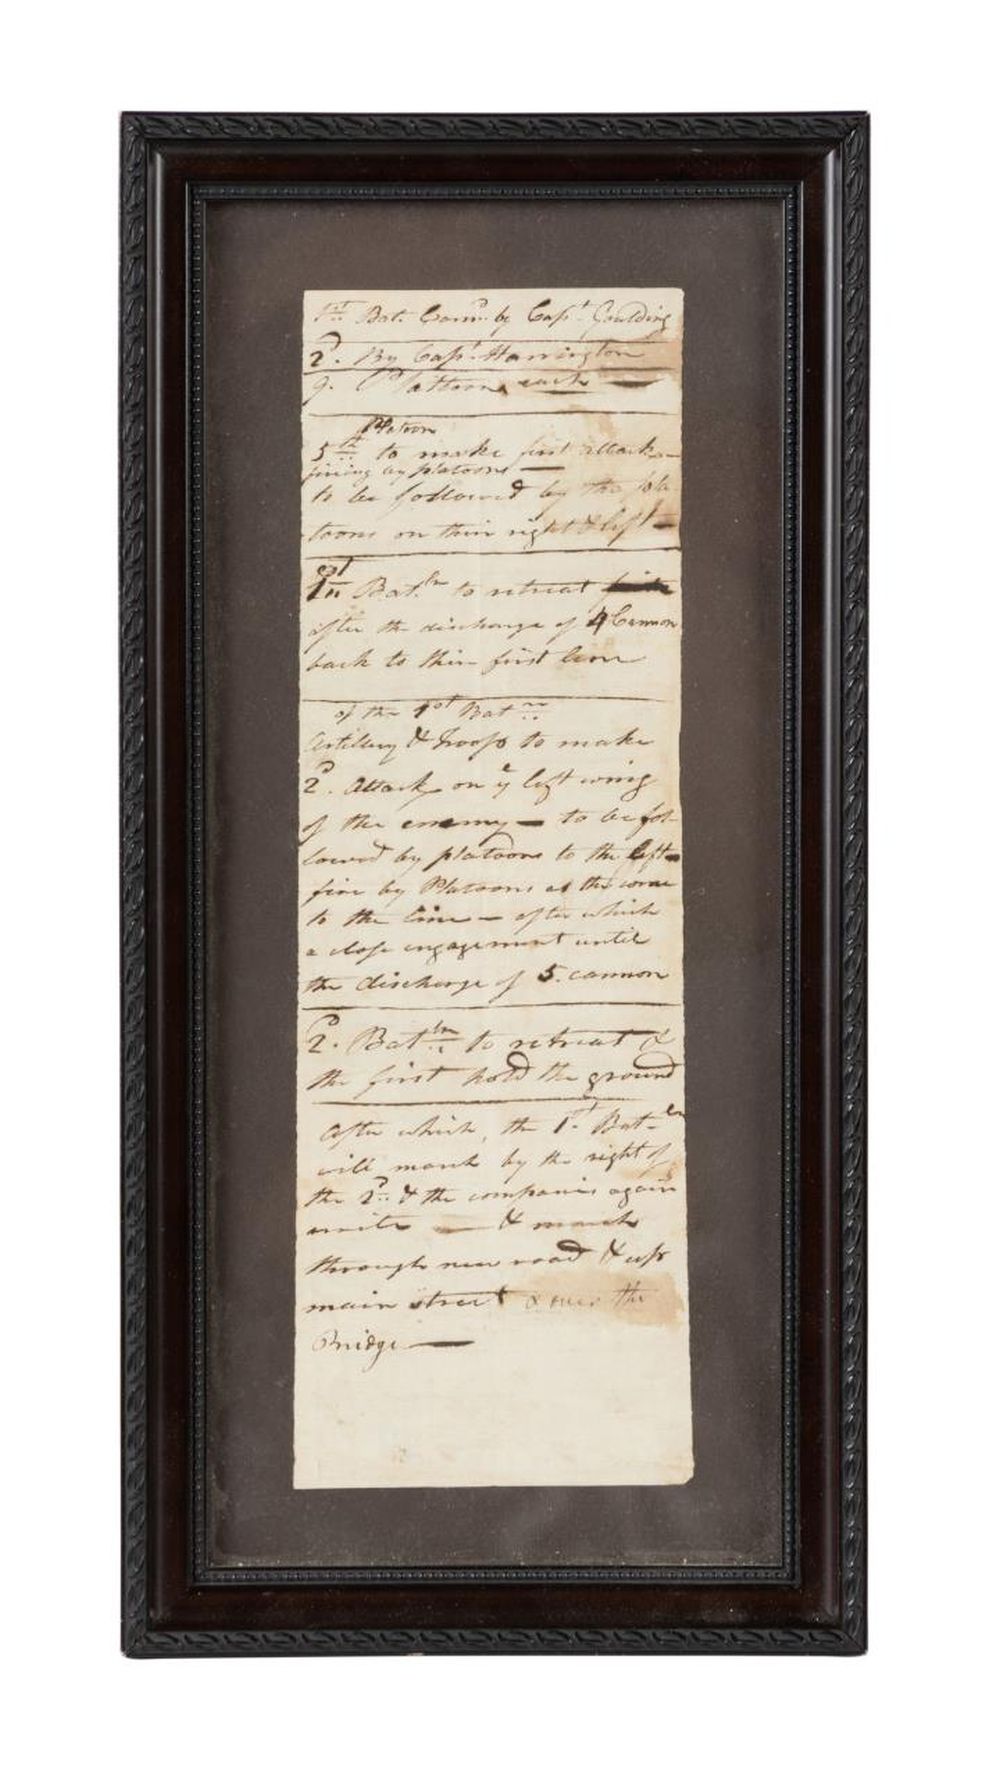 1st Bat. Comd. by Capt. Goulding
2d. By Capt. Harrington
9. Plattons each —
Platoon
5th to make first attack —
firing by platoons —
to be followed by the pla
toons on their right & left —
1st Batln to retreat
after the discharge of 4 Cannon
back to their first line
of the 1st Batn
Artillery & Troops to make
2d. Attack on ye left wing
of the enemy — to be fol-
lowed by platoons to the left —
fire by Platoons as the come
to the line — after which
a close engagement until
the discharge of 5. cannon
2d. Batln to retreat &
the first hold the ground
After which, the 1st Batln
will march by the right of
the 2d & the companies again
unite — & march
through new road & up
main street & over the
Bridge —